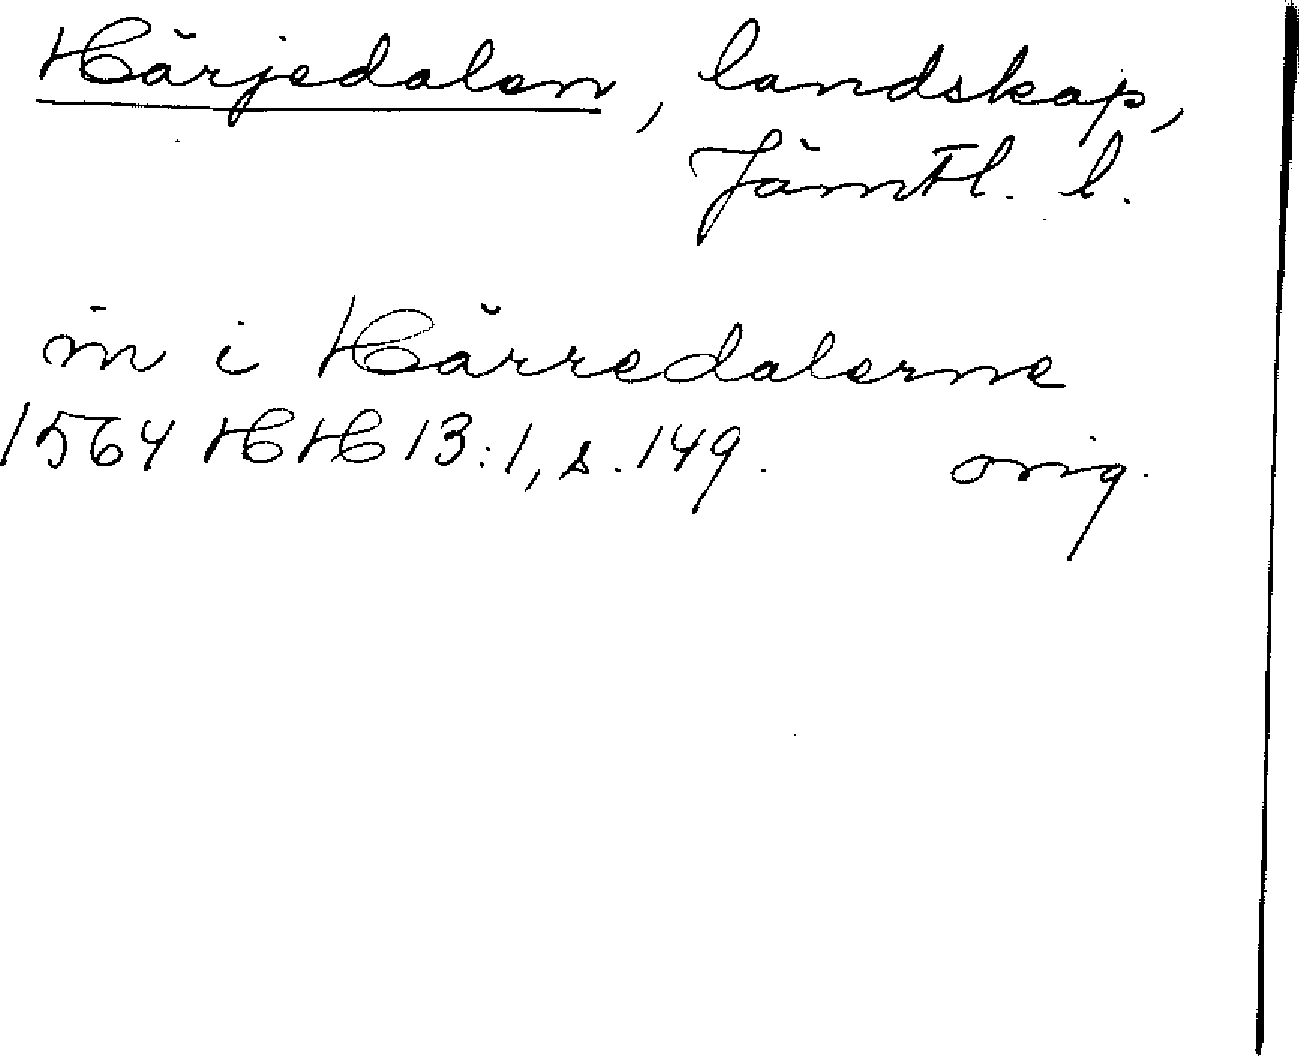 Härjedalen, landskap,
Jämtl. l.
in i Härredalerne
1564 HH 13:1, s. 149. orig.